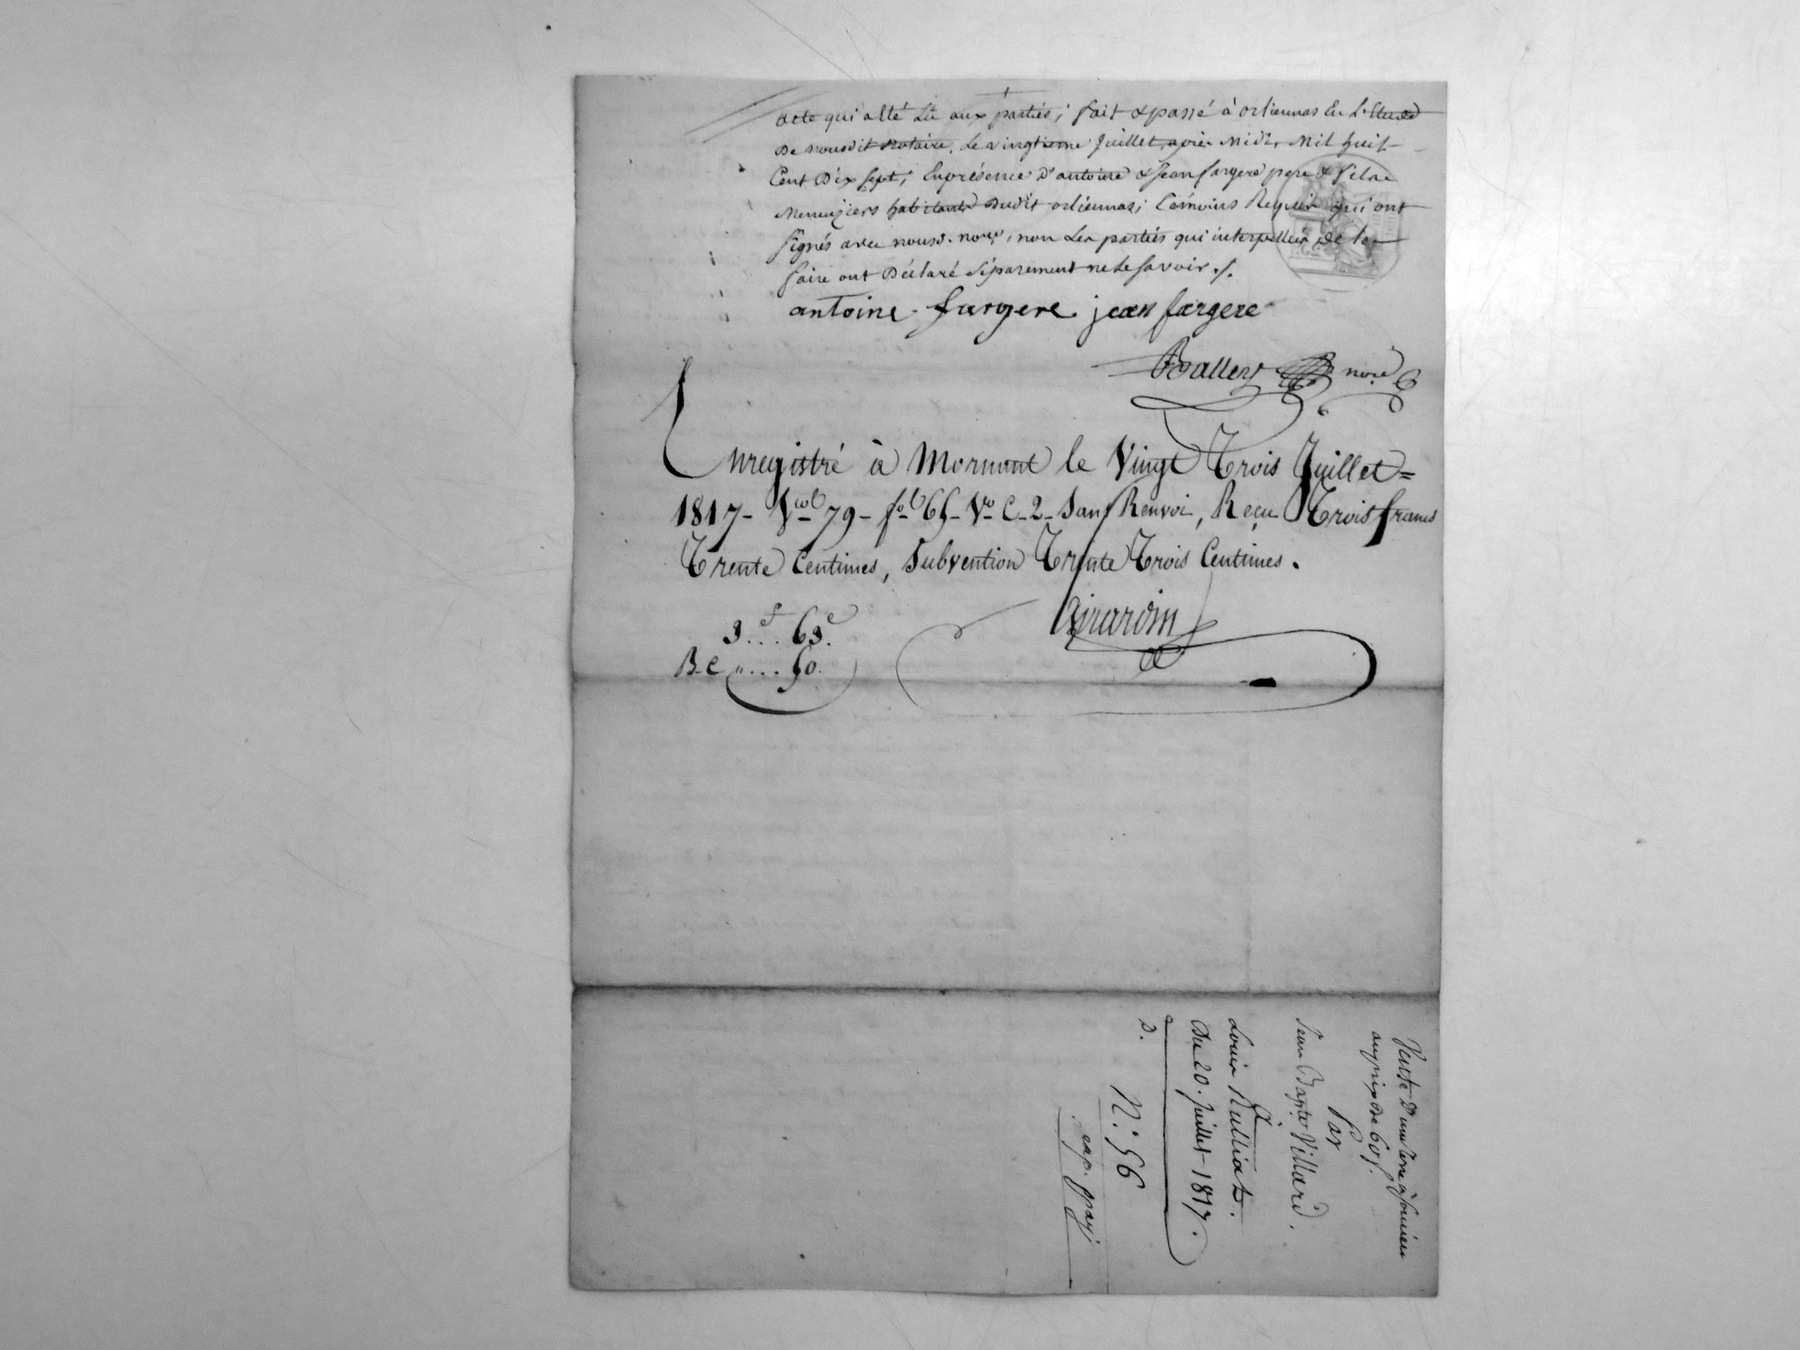 acte qui a été Lû aux parties; fait & passé à orliennas En L'Etude
De nousdit Notaire, Le vingtieme Juillet, après Midi, Mil huit
Cent Dix sept; En présence D'antoine & Jean fargere pere & fils
Menuziers habitants Dudit orliennas; témoins Requis qui ont
signés avec nousd. nore, non Les parties qui interpellées De le
faire ont Déclaré séparement ne le savoir ./.
antoine fargere jean fargere
nore
Enregistré à Mornant le Vingt Trois Juillet =
1817 - Vol 79 - fo 65 Vo C. 2 - Sans Renvoi, Reçu Trois francs
Trente Centimes, Subvention Trente Trois Centimes.
3f... 63c.
Girardin
B. C. "... 50.
Vente D'une terre à
au prix de 60f.
Par
Jean Bapte Villard.
à
Louis Rulliat.
Du 20. juillet 1817.
D.
N.° 56
exp. payé